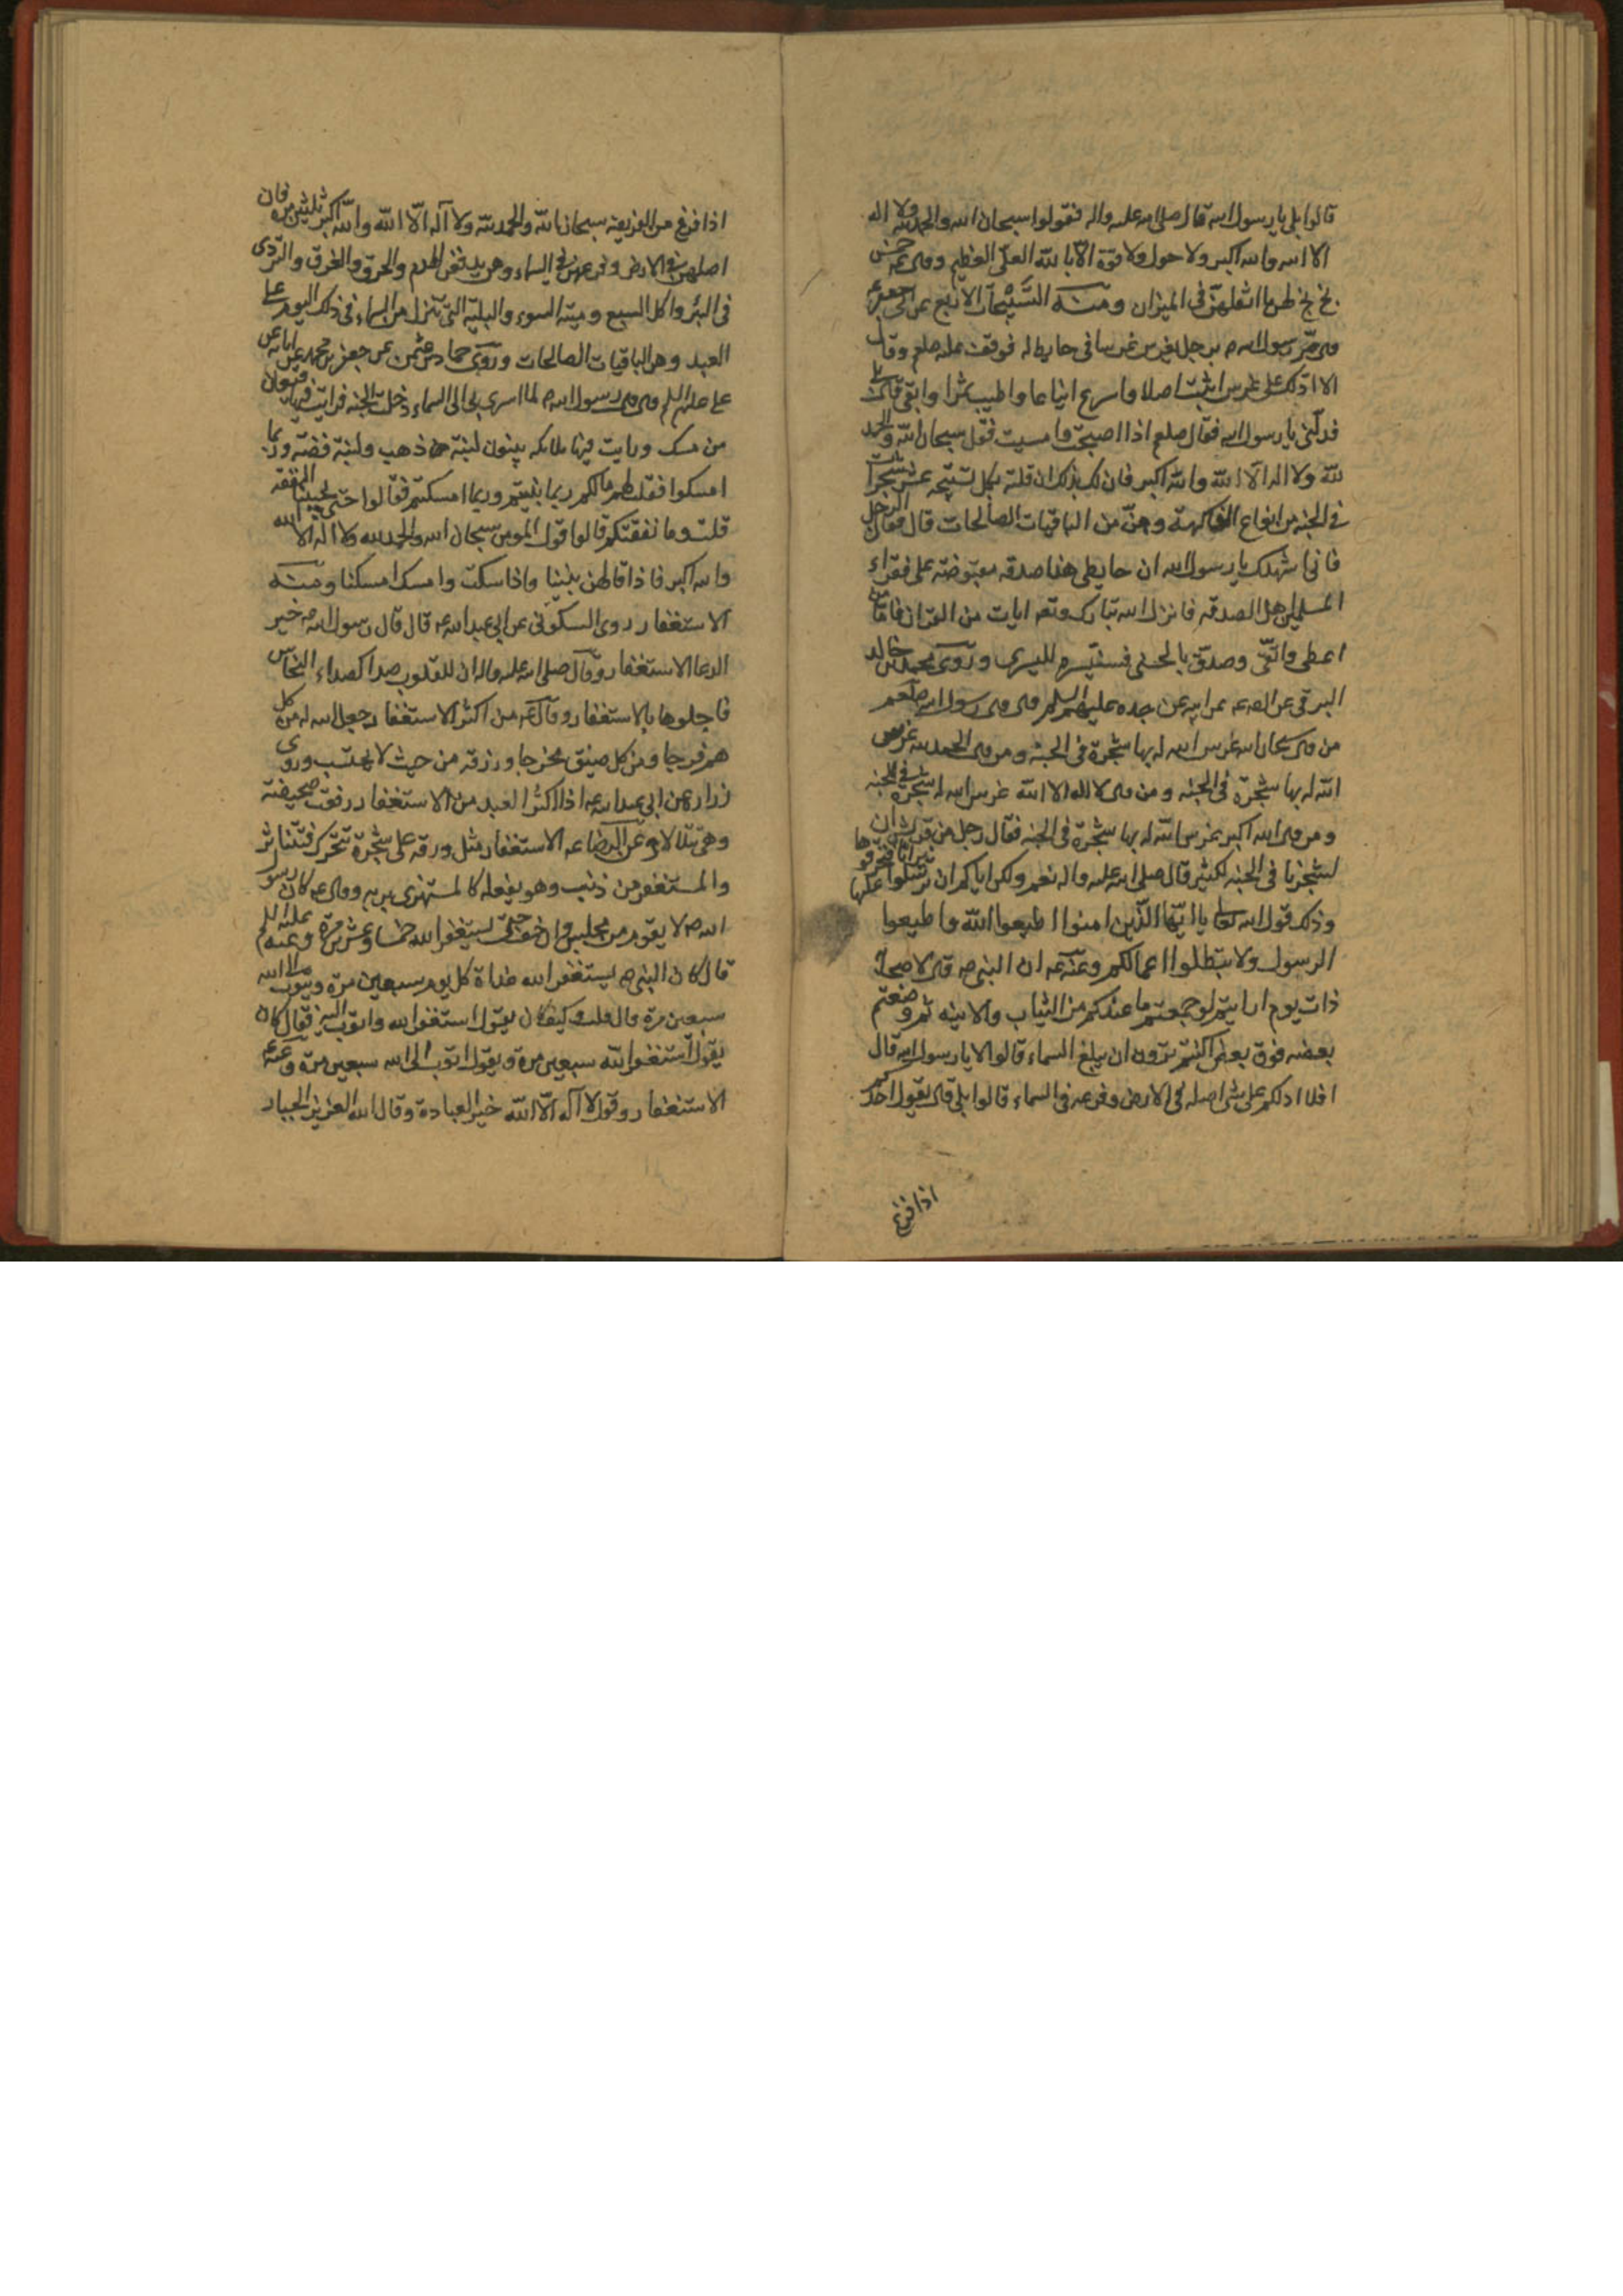 قالوا بلى يا رسول الله قال صلى الله عليه واله فتقولوا سبحان الله والحمد لله ولا اله
الا الله والله اكبر ولا حول ولا قوة الا بالله العلي العظيم وقال ع خمس
بخ بخ لهن ما اثقلهن في الميزان ومنه التسبيحات الاربع عن ابي جعفر ع
قال مر رسول الله ص برجل يغرس غرسا في حايط له فوقف عليه صلعم وقال
الا ادلك على غرس اثبت اصلا واسرع ايناعا واطيب ثمرا وابقى قال بلى
فدلني يا رسول الله فقال صلعم اذا اصبحت وامسيت فقل سبحان الله والحمد
لله ولا اله الا الله والله اكبر فان لك بذلك ان قلته بكل تسبيحه عشر شجرات
في الجنه من انواع الفاكهة وهن من الباقيات الصالحات قال فقال الرجل
فاني اشهدك يا رسول الله ان حايطي هذا صدقه مقبوضة على فقراء
المسلمين اهل الصدقه فانزل الله تبارك وتعه ايات من القران فاما من
اعطى واتقى وصدق بالحسنى فسنيسره لليسرى وروى محمد بن خالد
البرقي عن الصه عه عن ابيه عن جده عليهم السلم قال قال رسول الله صلعم
من قال سبحان الله غرس الله له بها شجرة في الجنه ومن قال الحمد لله غرس
الله له بها شجرة في الجنه ومن قال لا اله الا الله غرس الله له شجرة في الجنه
ومن قال الله اكبر غرس الله له بها شجرة في الجنه فقال رجل من قريش ان
شجرنا في الجنه لكثير قال صلى الله عليه واله نعم ولكن اياكم ان ترسلوا عليها نيرانا فتحرقوها
وذلك قول الله تعالى يا ايها الذين امنوا اطيعوا الله واطيعوا
الرسول ولا تبطلوا اعمالكم وعنه عه ان النبي ص قال لاصحابه
ذات يوم ارايتم لو جمعتم ما عندكم من الثياب والانيه ثم وضعتم
بعضه فوق بعض اكنتم ترون ان يبلغ السماء قالوا لا يا رسول الله قال
افلا ادلكم على شي اصله في الارض وفرعه في السماء قالوا بلى قال يقول احدكم
اذا فرغ
اذا فرغ من الفريضه سبحان الله والحمد لله ولا اله الا الله والله اكبر ثلثين مرة فان
اصلهن في الارض وفرعهن في السماء وهن يدفعن الهدم والحرق والغرق والتردى
في البئر واكل السبع وميته السوء والبلية التي تنزل من السماء في ذلك اليوم على
العبد وهن الباقيات الصالحات وروى حماد بن عثمن عن جعفر بن محمد عن ابائه عن
علي عليهم السلم قال قال رسول الله ص لما اسرى بي الى السماء دخلت الجنه فرايت فيها قيعان
من مسك ورايت فيها ملائكه يبنون لبنة من ذهب ولبنة فضة وربما
امسكوا فقلت لهم مالكم ربما بنيتم وربما امسكتم فقالوا حتى تجيئنا النفقه
قلت وما نفقتكم قالوا قول المومن سبحان الله والحمد لله ولا اله الا الله
والله اكبر فاذا قالهن بنينا واذا سكت وامسك امسكنا ومنه
الاستغفار روى السكوني عن ابي عبد الله عه قال قال رسول الله ص خير
الدعا الاستغفار وقال صلى الله عليه واله ان للقلوب صدا كصداء النحاس
فاجلوها بالاستغفار وقال عه من اكثر الاستغفار جعل الله له من كل
هم فرجا ومن كل ضيق مخرجا ورزقه من حيث لا يحتسب وروى
زراره عن ابي عبد الله عه اذا اكثر العبد من الاستغفار رفعت صحيفته
وهي تتلالا وعن الرضا عه الاستغفار مثل ورقه على شجرة تتحرك فتتناثر
والمستغفر من ذنب وهو يفعله كالمستهزى بربه وقال عه كان رسول
الله ص لا يقوم من مجلس وان خف حتى يستغفر الله خمسا وعشرين مرة وعنه عليه السلم
قال كان النبي ص يستغفر الله غداة كل يوم سبعين مرة ويتوب الى الله
سبعين مرة قال قلت وكيف كان يقول استغفر الله واتوب اليه فقال كان
يقول استغفر الله سبعين مرة ويقول اتوب الى الله سبعين مرة وعنه عه
الاستغفار وقول لا اله الا الله خير العبادة وقال الله العزيز الجبار